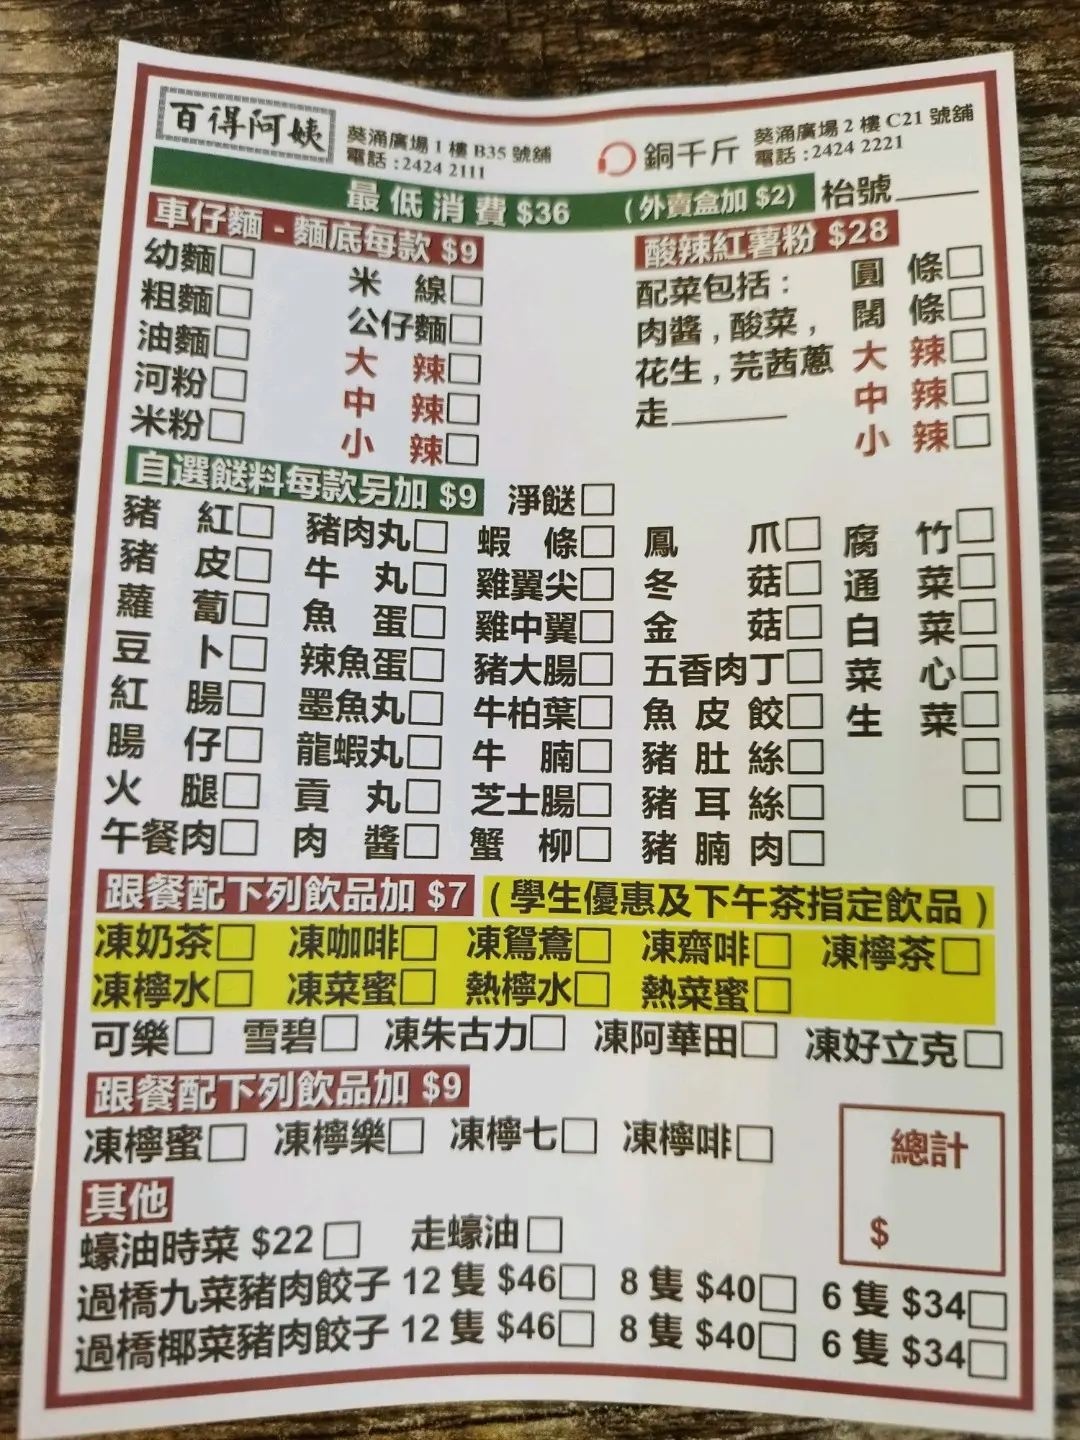 百得阿姨 葵涌廣場 1 樓 B35 號舖 電話 : 2424 2111
銅千斤 葵涌廣場 2 樓 C21 號舖 電話 : 2424 2221
最低消費 $36 (外賣盒加 $2) 枱號
車仔麵 - 麵底每款 $9
幼麵 米線
粗麵 公仔麵
油麵 大辣
河粉 中辣
米粉 小辣
酸辣紅薯粉 $28
配菜包括 : 圓條
肉醬 , 酸菜 , 闊條
花生 , 芫茜蔥 大辣
走 中辣
小辣
自選餸料每款另加 $9 淨餸
豬紅 豬肉丸 蝦條 鳳爪 腐竹
豬皮 牛丸 雞翼尖 冬菇 通菜
蘿蔔 魚蛋 雞中翼 金菇 白菜
豆卜 辣魚蛋 豬大腸 五香肉丁 菜心
紅腸 墨魚丸 牛柏葉 魚皮餃 生菜
腸仔 龍蝦丸 牛腩 豬肚絲
火腿 貢丸 芝士腸 豬耳絲
午餐肉 肉醬 蟹柳 豬腩肉
跟餐配下列飲品加 $7 (學生優惠及下午茶指定飲品)
凍奶茶 凍咖啡 凍鴛鴦 凍齋啡 凍檸茶
凍檸水 凍菜蜜 熱檸水 熱菜蜜
可樂 雪碧 凍朱古力 凍阿華田 凍好立克
跟餐配下列飲品加 $9
凍檸蜜 凍檸樂 凍檸七 凍檸啡
總計
$
其他
蠔油時菜 $22 走蠔油
過橋九菜豬肉餃子 12 隻 $46 8 隻 $40 6 隻 $34
過橋椰菜豬肉餃子 12 隻 $46 8 隻 $40 6 隻 $34